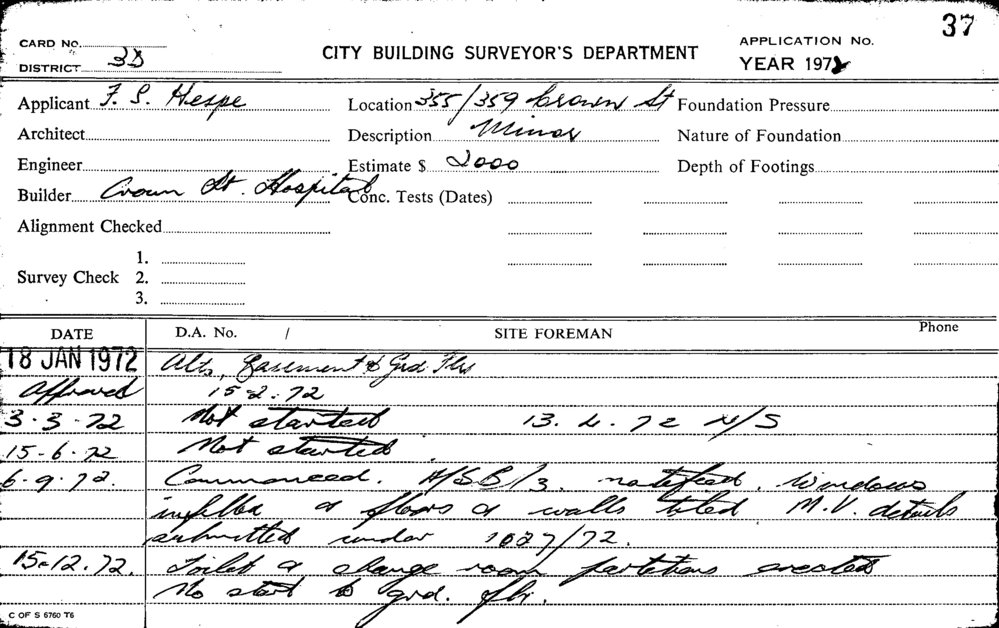 37
CARD No.
DISTRICT 3D
CITY BUILDING SURVEYOR'S DEPARTMENT
APPLICATION No.
YEAR 1972
Applicant F. S. Hespe
Location 355/359 Crown St
Foundation Pressure
Architect
Description Minor
Nature of Foundation
Engineer
Estimate $ 2000
Depth of Footings
Builder Crown St. Hospital
Conc. Tests (Dates)
Alignment Checked
Survey Check 1.
2.
3.
DATE D.A. No. / SITE FOREMAN Phone
18 JAN 1972 Alts, Basement & Grd Flrs
Approved 15.2.72
3.3.72 Not started 13.4.72 N/S
15-6.72 Not started.
6.9.72. Commenced. H/SB/3. notified. Windows
infilled & floors & walls tiled M.V. details
submitted under 1027/72.
15-12.72. Toilet & change room partitions erected
No start to grd. flr.
C OF S 6760 T6